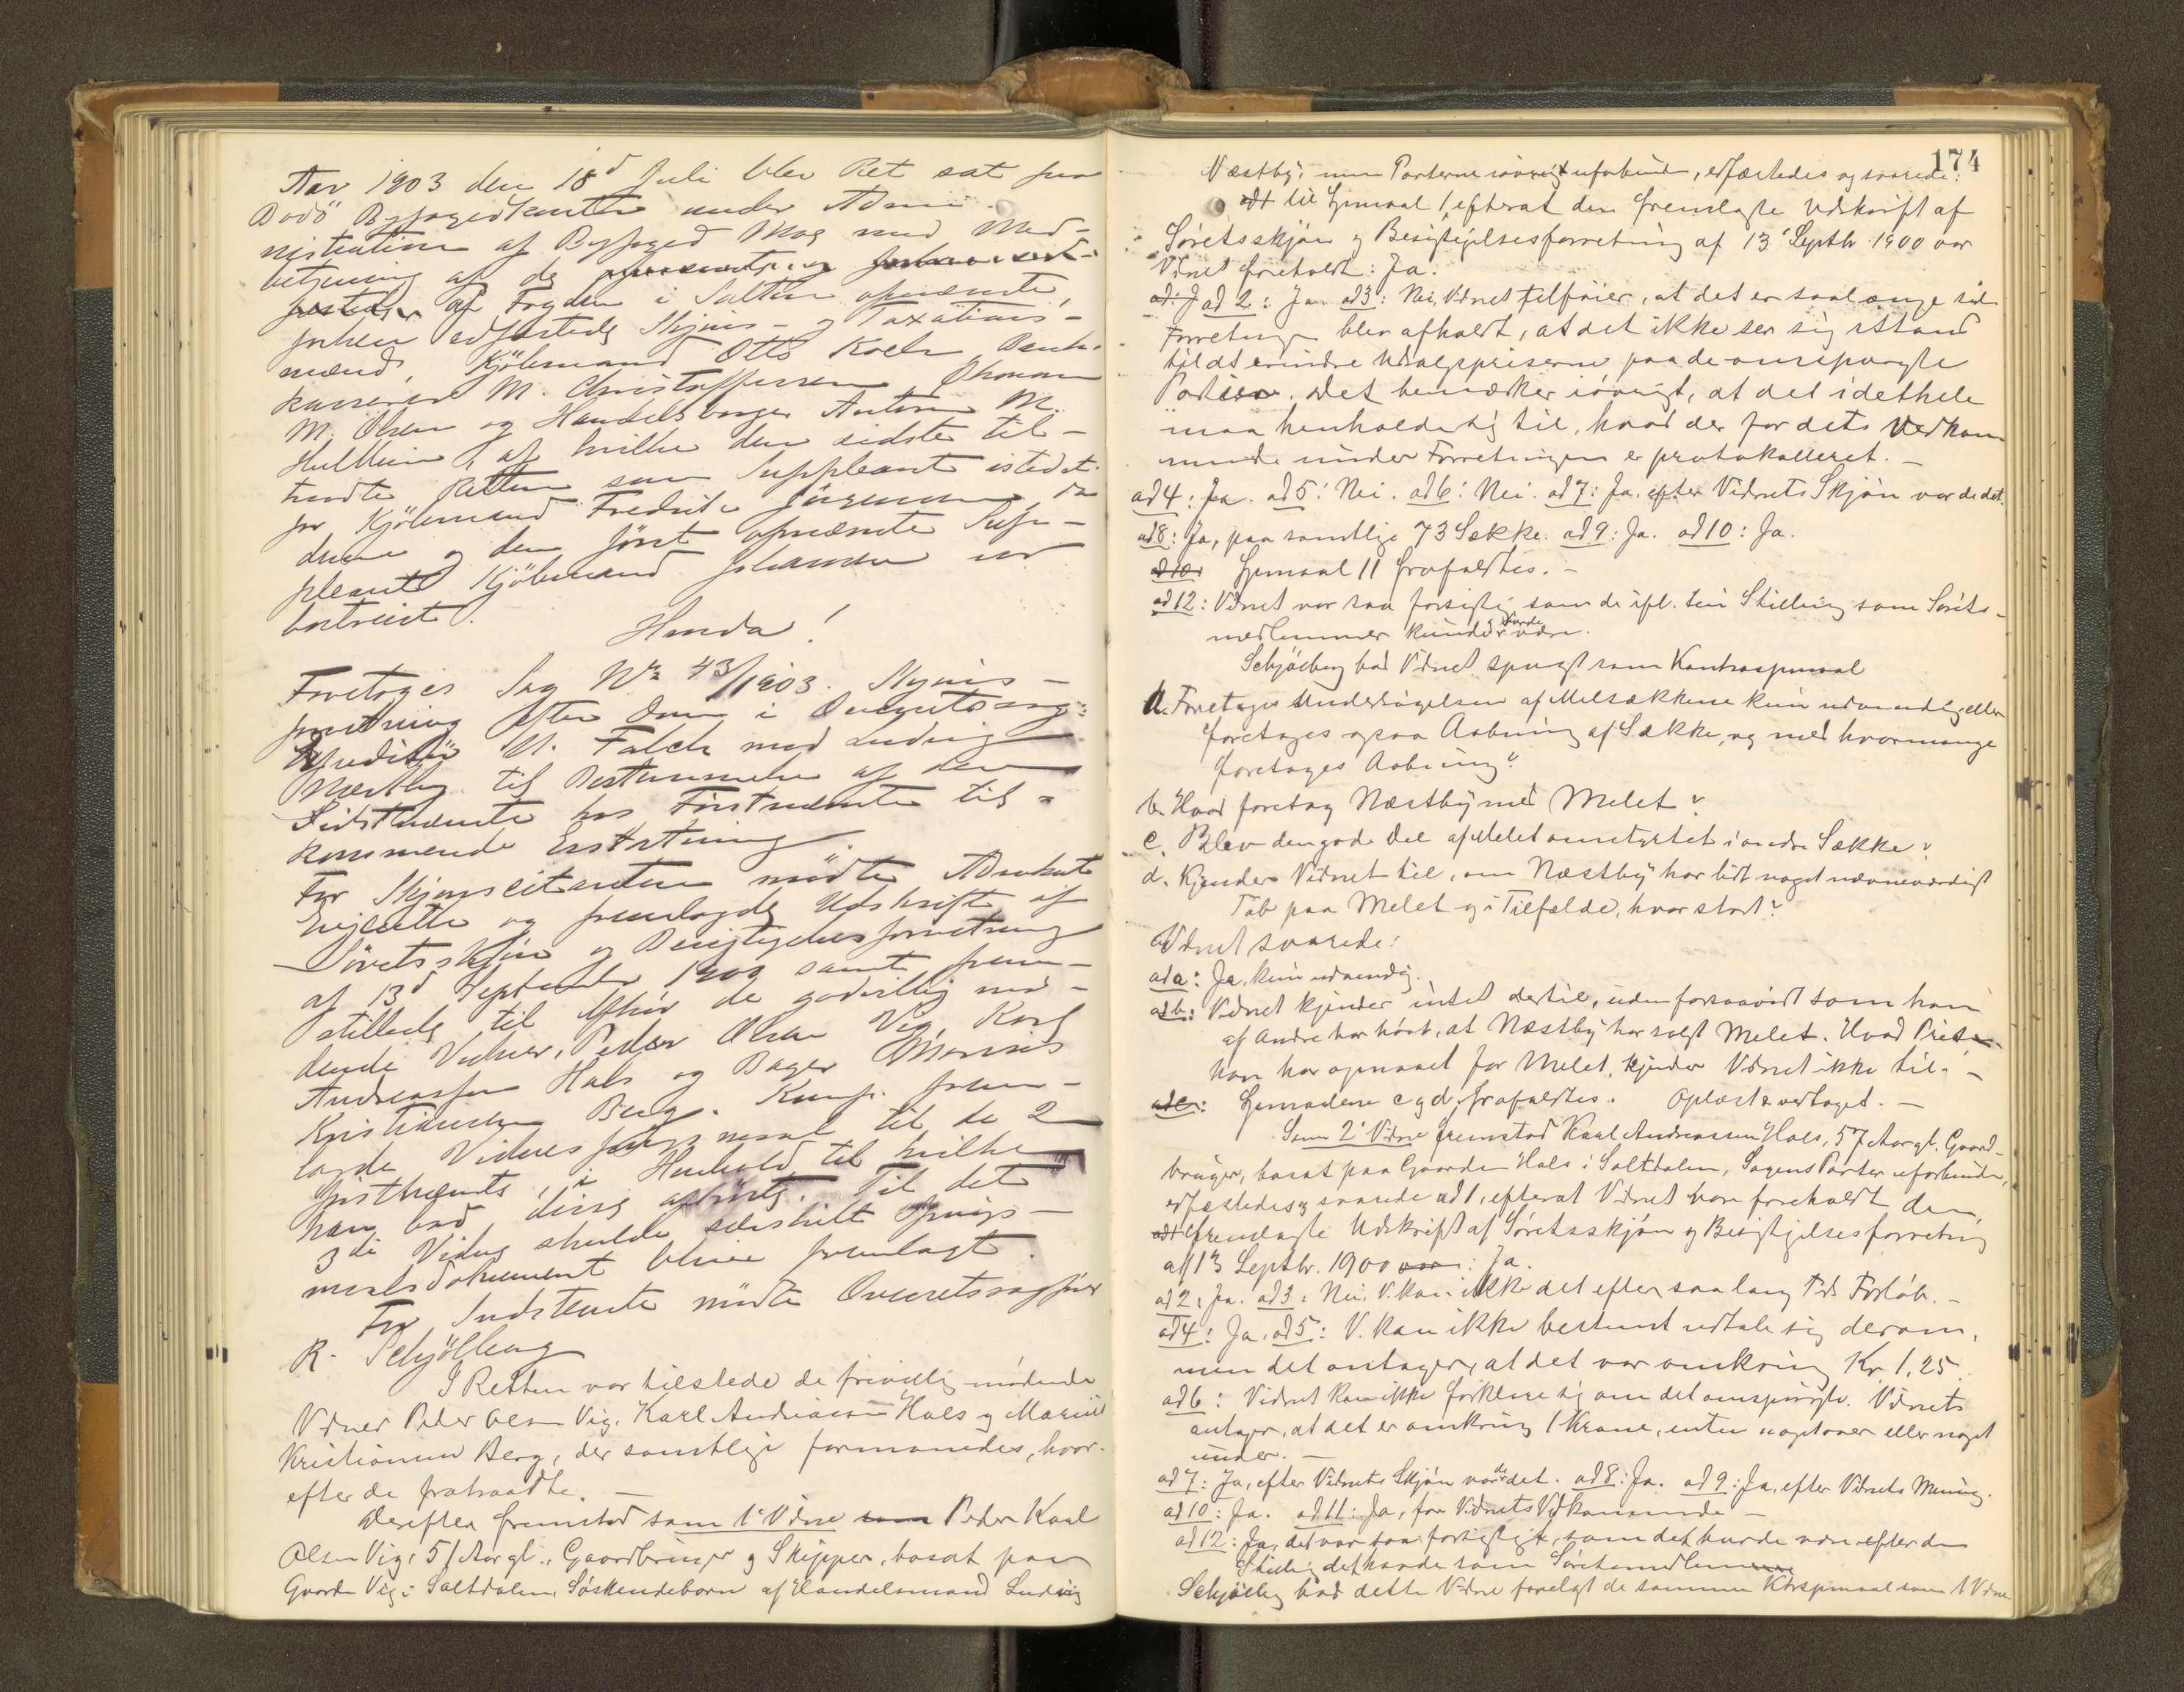 Aar 1903 den 18d Juli blev Ret sat paa
Bodö Byfogedkontor under Admi-
nistration af Byfoged Moe med Med-
betjening af de
af Fogden i Salten opnævnte,
forhen edfæstede Skjøns- og Taxations-
mænd, Kjöbmand Otto Koch, Bank-
kasserer M. Christoffersen,
M. Olsen og Handelsborger Anton M.
, af hvilke den sidste til-
traadte Retten som Suppleant istedet-
for Kjöbmand Fredrik Jürgensen, da
denne og den först opnævnte Sup-
pleant Kjöbmand Johansen er
bortreist.
Hvorda!
Foretoges Sag No 43/1903. Skjøns-
forretning efter Dom i Overretssag:
Expeditör N. Falch mod Ludvig
Næstby til Bestemmelse af den
Sidstnævnte hos Förstnævnte til-
kommende Erstatning.
For Skjønscitanten mödte Advokat
og fremlagde Udskrift af
Söretsskjön og Besigtigelsesforretning
af 13d September 1900 samt frem-
stillede til Afhör de godvillig mö-
dende Vidner, Peder Olsen Vig, Karl
Andreassen Hals og Bager Marius
Kristiansen Berg. Komp. frem-
lagde Vidnespørgsmaal til de 2
förstnævnte, i Henhold til hvilke
han bad disse afhört. Til det
3die Vidne skulde særskilt Spörgs-
maalsdokument blive fremlagt.
For Indstevnte mödte Overretssagförer
R. Schjölberg
I Retten var tilstede de frivillig mødende
Vidner Peder Olsen Vig, Karl Andreassen Hals og Marius
Kristiansen Berg, der samtlige formanedes, hvor-
efter de fratraadte. –
Derefter fremstod som 1' Vidne som Peder Kaal
Olsen Vig, 51 Aar gl., Gaardbruger og Skipper, bosat paa
Gaarden Vig i Saltdalen, Söskendebarn af Handelsmand Ludvig
174
Næstby, men Parterne iøvrigt uforbunden, edfæstedes og svarede:
ad1 til Spmaal 1, efterat den fremlagte Udskrift af
Söretsskjön og Besigtigelsesforretning af 13' Septbr 1900 var
Vidnet foreholdt: Ja.
ad: J ad 2: Ja. ad3: Nei, Vidnet tilföier, at det er saalænge siden
Forretningen blev afholdt, at det ikke ser sig istand
til at erindre Udsalgspriserne paa de omspurgte
Partier. Det bemærker iövrigt, at det i dethele
maa henholde sig til, hvad der for dets Vedkom-
mende under Forretningen er protokolleret. –
ad4: Ja. ad5: Nei. ad6: Nei. ad7: Ja, efter Vidnets Skjön var de det.
ad8: Ja, paa samtlige 73 Sække. ad9: Ja. ad10: Ja.
ad 10: Spmaal 11 frafaldtes. –
ad12: Vidnet var saa forsigtig, som de ifl. sin Stilling som Sörets-
medlemmer kunde og burde være.
Schjölberg bad Vidnet spurgt som Kontraspmaal
a. Foretoges Undersögelsen af Melsækkene kun udvendig eller
foretoges ogsaa Aabning af Sække, og med hvormange
foretoges Aabning?
b. Hvad foretog Næstby med Melet?
c. Blev den gode Del af Melet omstyrtet i andre Sække?
d. Kjender Vidnet til, om Næstby har lidt noget nævneværdigt
Tab paa Melet og i Tilfælde, hvor stort?
Vidnet svarede:
ad a: Ja, kun udvendig.
ad b: Vidnet kjender intet dertil, uden forsaavidt som han
af Andre har hört, at Næstby har solgt Melet. Hvad Pris
han har opnaaet for Melet, kjender Vidnet ikke til. –
ad c: Spmaalene c og d frafaldtes. Oplæst & vedtaget. –
Som 2' Vidne fremstod Kaal Andreassen Hals, 57 Aar gl. Gaard-
bruger, bosat paa Gaarden Hals i Saltdalen, Sagens Parter uforbunden,
edfæstedes og svarede ad 1, efterat Vidnet var foreholdt den
ad1 fremlagte Udskrift af Söretsskjön og Besigtigelsesforretning
af 13 Septbr. 1900 var: Ja.
ad2: Ja. ad3: Nei, V. kan ikke det efter saa lang Tids Forlöb. –
ad4: Ja. ad5: V. kan ikke bestemt udtale sig derom,
men det antager, at det var omkring Kr 1,25.
ad6: Vidnet kan ikke forklare sig om det omspurgte. Vidnet
antager, at det er omkring 1 Krone, enten noget over eller noget
under. –
ad7: Ja, efter Vidnets Skjön var de det. ad8: Ja. ad9: Ja, efter Vidnets Mening.
ad10: Ja. ad11: Ja, for Vidnets Vedkommende –
ad12: Ja, det var saa forsigtigt, som det burde være efter den
Stilling det havde som Söretsmedlem
Schjölberg bad dette Vidne forelagt de samme Ktrspmaal som 1' Vidne